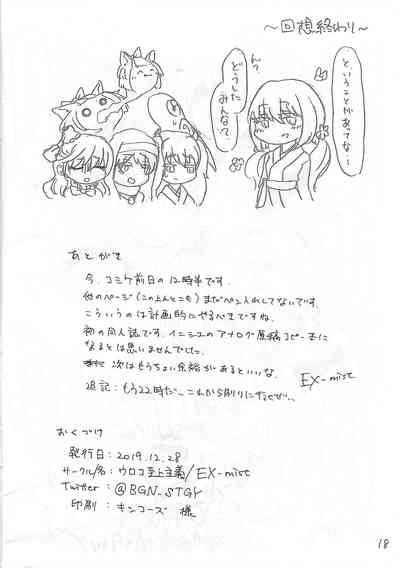 ～回想終わり～
ということがあってな…
ん?
どうした
みんな?
あとがき
今、コミケ前日の12時半です。
他のページ(この上んとこも)まだペン入れしてないです。
こういうのは計画的にやるべきですね。
初の同人誌です。イニシエのアナログ原稿コピー本に
なるとは思いませんでした。
次はもうちょい余裕があるといいな。 EX-mist
追記:もう22時だ…これから刷りに行くぜ…
おくづけ
発行日:2019.12.28
サークル/名:ウロコ至上主義/EX-mist
Twitter:@BGN_STGY
印刷:キンコーズ 様
18